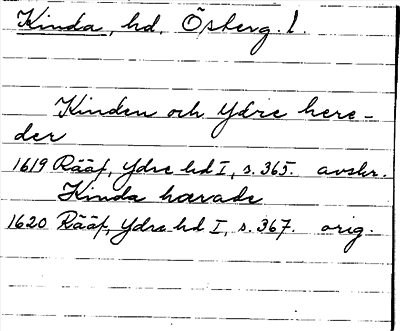 Kinda, hd. Österg. l.
Kinden och Ydre here-
der
1619 Rääf, Ydre hd I, s. 365. avskr.
Kinda harade
1620 Rääf, Ydre hd I, s. 367. orig.